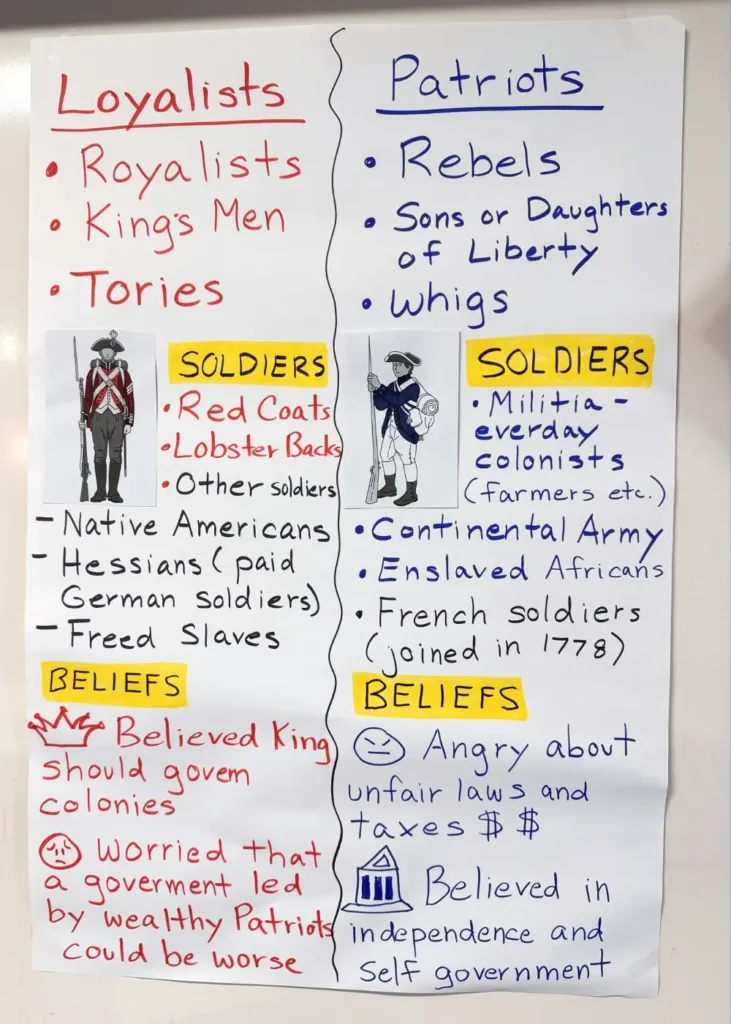 Loyalists
• Royalists
• King's Men
• Tories
SOLDIERS
• Red Coats
• Lobster Backs
• Other soldiers
- Native Americans
- Hessians (paid
German soldiers)
- Freed Slaves
BELIEFS
Believed King
should govern
colonies
Worried that
a goverment led
by wealthy Patriots
could be worse
Patriots
• Rebels
• Sons or Daughters
of Liberty
• Whigs
SOLDIERS
• Militia -
everday
colonists
(farmers etc.)
• Continental Army
• Enslaved Africans
• French soldiers
(joined in 1778)
BELIEFS
Angry about
unfair laws and
taxes $ $
Believed in
independence and
self government